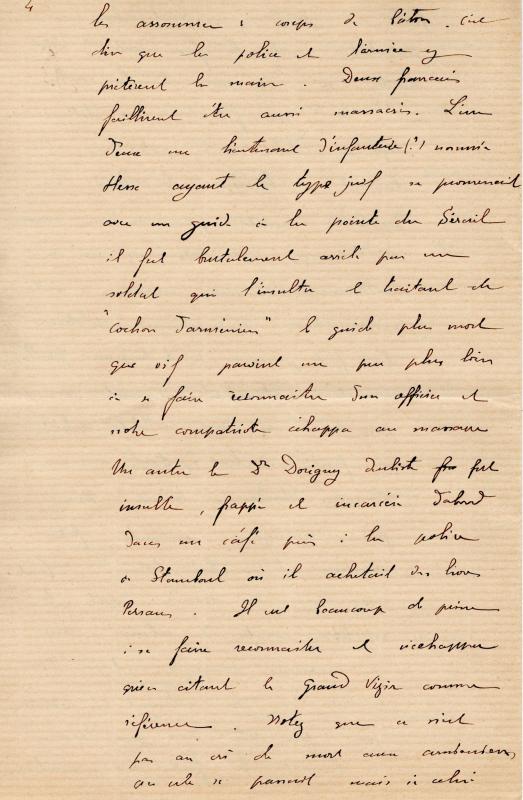 4
les assommer à coups de bâton, c'est
dire que la police et l'armée y
prêtèrent la main. Deux français
faillirent être aussi massacrés. L'un
d'eux un lieutenant d'infanterie (?) nommé
Hesse ayant le type juif se promenait
avec un guide à la pointe du Sérail
il fut brutalement arrêté par un
soldat qui l'insulta le traitant de
"cochon d'arménien" le guide plus mort
que vif parvint un peu plus loin
à se faire reconnaître d'un officier et
notre compatriote échappa au massacre
Un autre le Dr Dorigny dentiste fut
insulté, frappé et incarcéré d'abord
dans un café puis à la police
à Stamboul où il achetait des livres
Persans. Il eut beaucoup de peine
à se faire reconnaître et n'échappa
qu'en citant le Grand Vizir comme
référence. Notez que ce n'est
pas au cri de mort aux
que cela se passait mais à celui